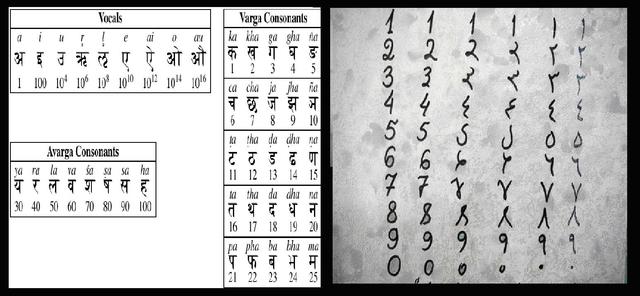 Vocals
a i u ṛ ḷ e ai o au
अ इ उ ऋ ऌ ए ऐ ओ औ
1 100 10⁴ 10⁶ 10⁸ 10¹⁰ 10¹² 10¹⁴ 10¹⁶
Avarga Consonants
ya ra la va śa ṣa sa ha
य र ल व श ष स ह
30 40 50 60 70 80 90 100
Varga Consonants
ka kha ga gha ṅa
क ख ग घ ङ
1 2 3 4 5
ca cha ja jha ña
च छ ज झ ञ
6 7 8 9 10
ṭa ṭha ḍa ḍha ṇa
ट ठ ड ढ ण
11 12 13 14 15
ta tha da dha na
त थ द ध न
16 17 18 19 20
pa pha ba bha ma
प फ ब भ म
21 22 23 24 25
1 1 1 1 1 ١
2 2 2 ٢ ٢
3 3 ٣
4 4 ٤
5 5 5 ٥
6 6 ٦
7 7 ٧ ٧
8 8 8 ٨ ٨
9 9 9 9 9 ٩
0 0 0 0 ٠ ٠